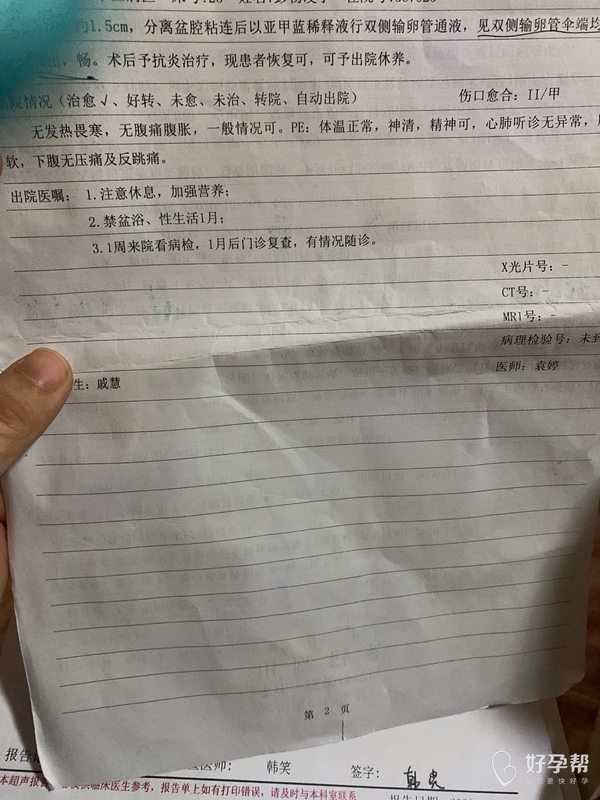 1.5cm，分离盆腔粘连后以亚甲蓝稀释液行双侧输卵管通液，见双侧输卵管伞端均
畅。术后予抗炎治疗，现患者恢复可，可予出院休养。
院情况（治愈√、好转、未愈、未治、转院、自动出院） 伤口愈合：II/甲
无发热畏寒，无腹痛腹胀，一般情况可。PE：体温正常，神清，精神可，心肺听诊无异常，
软，下腹无压痛及反跳痛。
出院医嘱：1.注意休息，加强营养；
2.禁盆浴、性生活1月；
3.1周来院看病检，1月后门诊复查，有情况随诊。
X光片号：-
CT号：-
MRI号：-
病理检验号：未到
生：戚慧 医师：袁婷
第 2 页
报告 医师： 韩笑 签字：
本超声报告 供临床医生参考，报告单上如有打印错误，请及时与本科室联系
报告日期
好孕帮
让您更快好孕